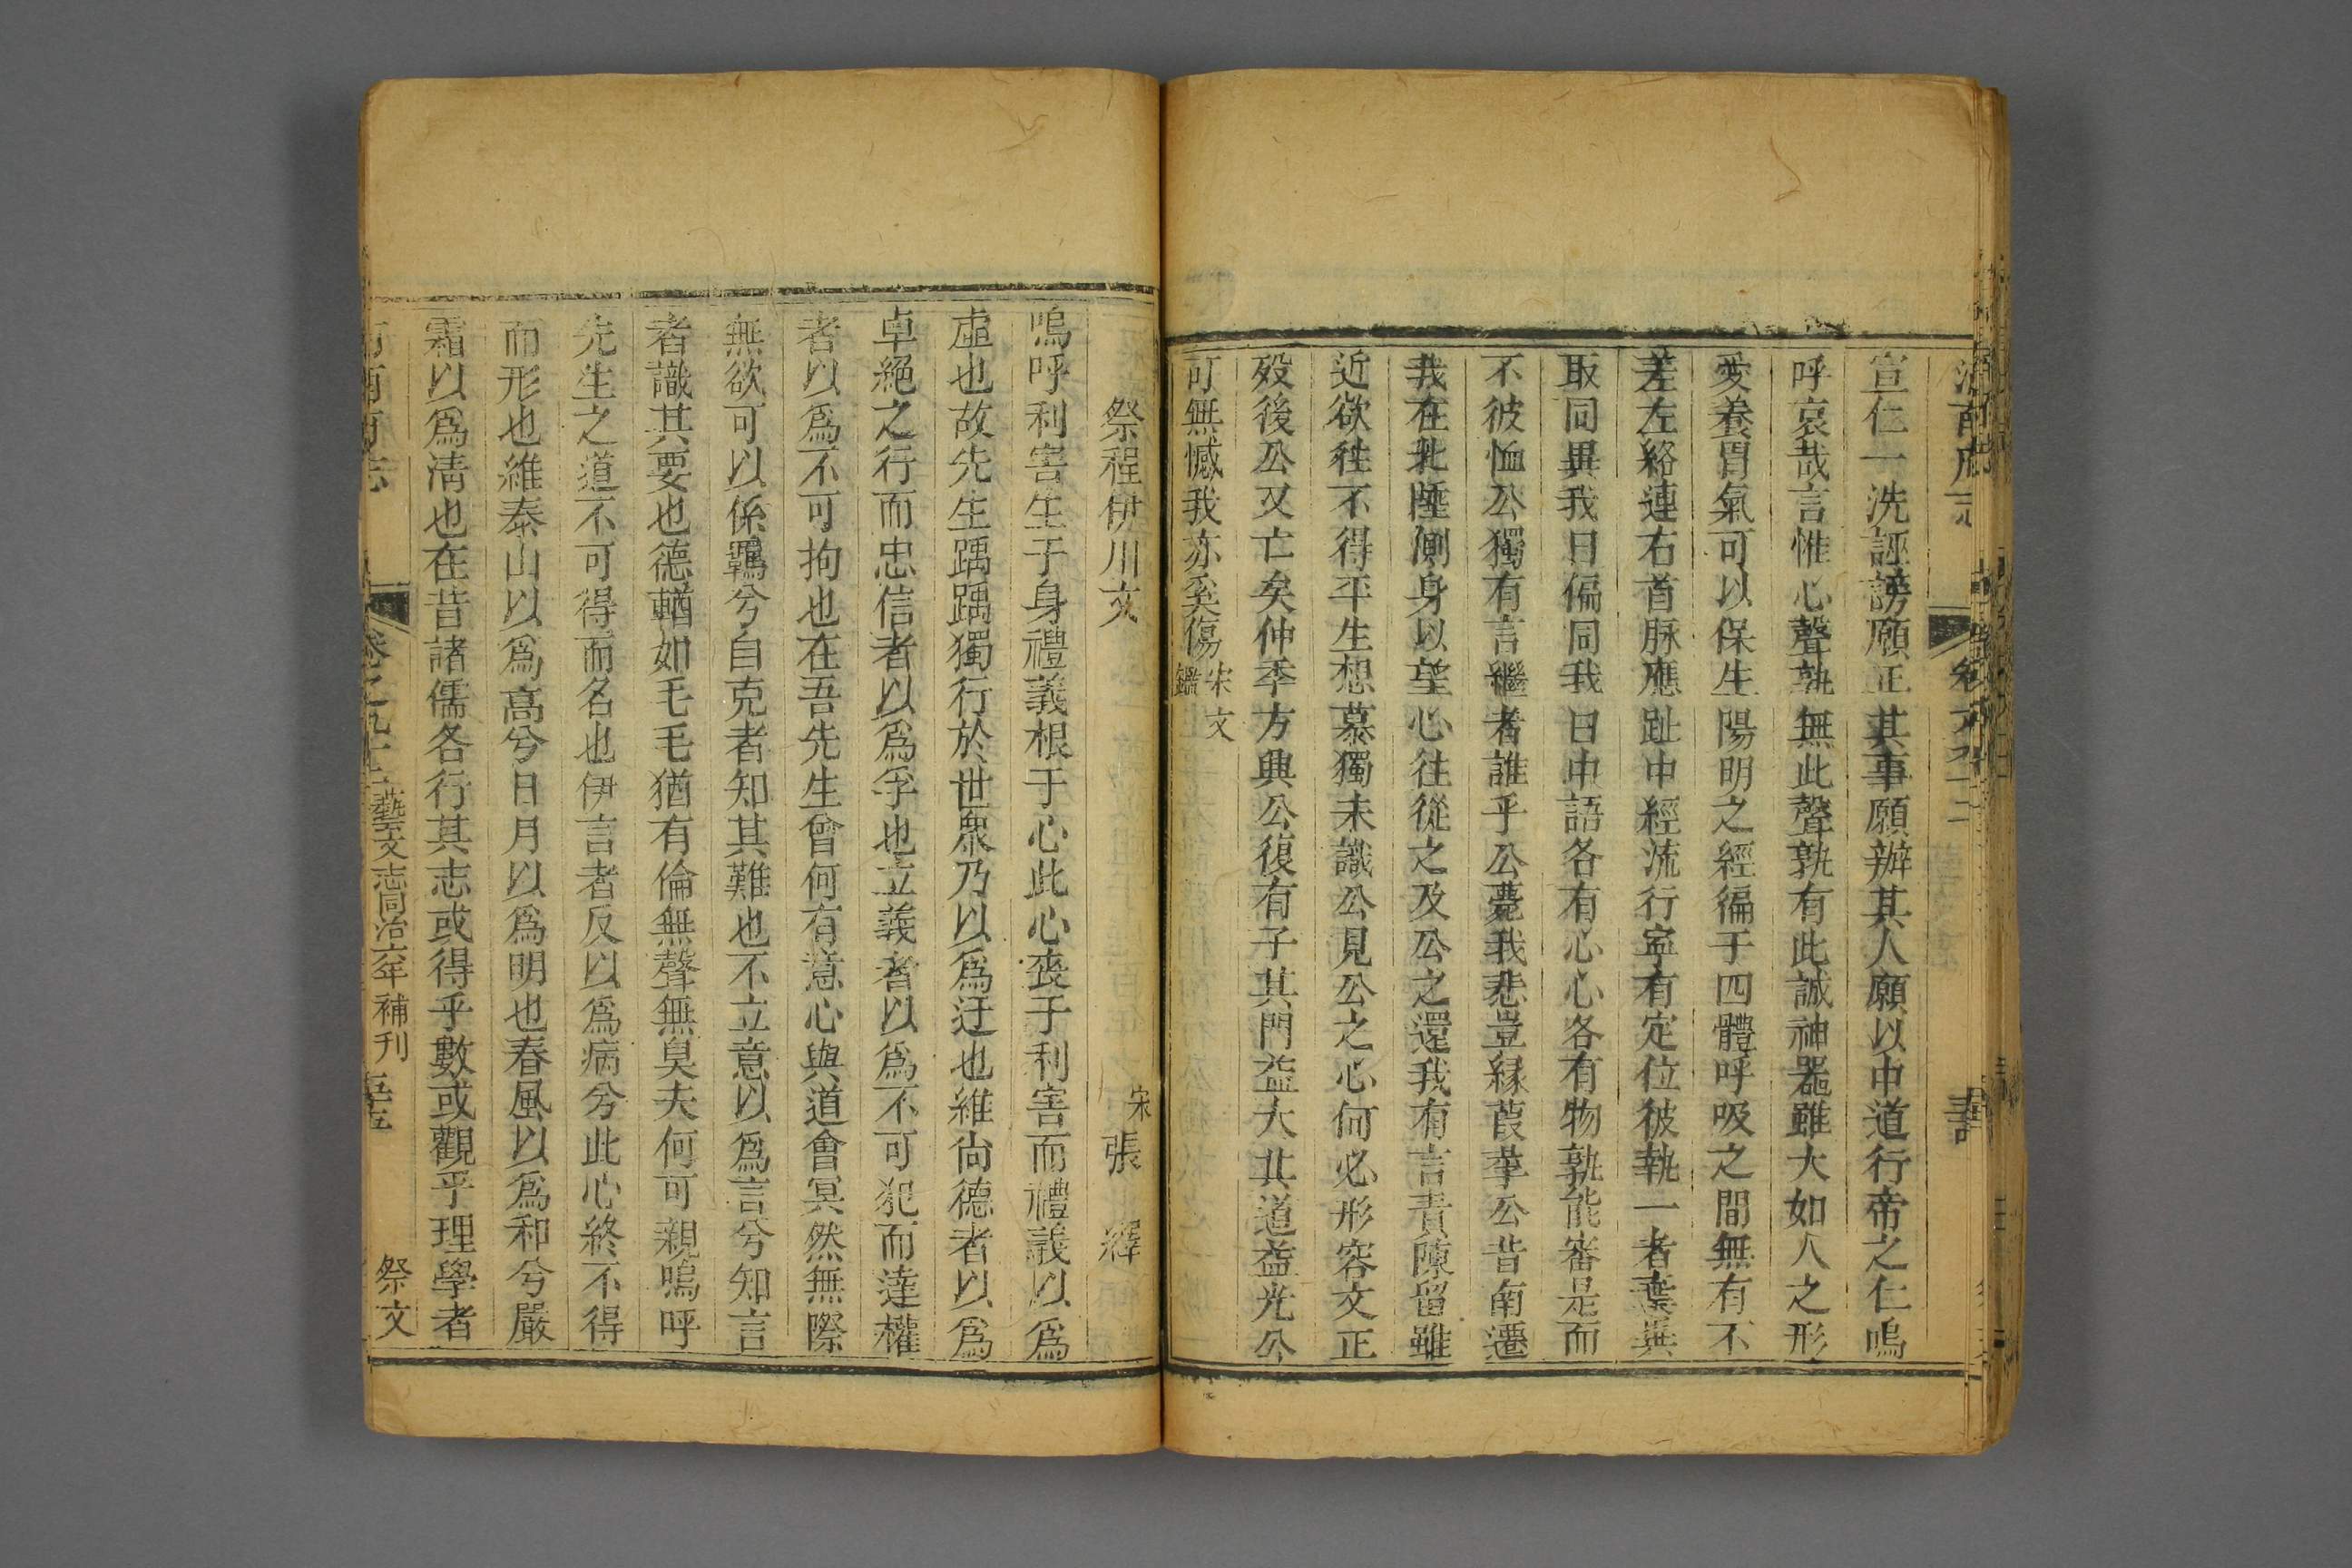 河南府志
宣仁一洗誣謗願正其事願辦其人願以中道行帝之仁嗚
呼哀哉言惟心聲孰無此聲孰有此誠神器雖大如人之形
愛養胃氣可以保生陽明之經徧于四體呼吸之間無有不
差左絡連右首脉應趾中經流行寧有定位彼執一者葉
取同異我曰偏同我曰中語各有心心各有物孰能審是而
不彼恤公獨有言繼者誰乎公薨我悲豈緣葭莩公昔南遷
我在北陲側身以望心往從之及公之還我有言責陳留雖
近欲往不得平生想慕獨未識公見公之心何必形容文正
歿後公又亡矣仲季方興公復有子其門益大其道益光公
可無憾我亦奚傷宋文鑑
祭程伊川文 宋張 繹
嗚呼利害生于身禮義根于心此心喪于利害而禮義以爲
虛也故先生踽踽獨行於世衆乃以爲迂也維尚德者以爲
卓絕之行而忠信者以爲孚也立義者以爲不可犯而達權
者以爲不可拘也在吾先生曾何有意心與道會冥然無際
無欲可以係羈兮自克者知其難也不立意以爲言兮知言
者識其要也德輶如毛毛猶有倫無聲無臭夫何可親嗚呼
先生之道不可得而名也伊言者反以爲病兮此心終不得
而形也維泰山以爲高兮日月以爲明也春風以爲和兮嚴
霜以爲清也在昔諸儒各行其志或得乎數或觀乎理學者
河南府志 卷之九十 藝文志同治六年補刊 祭文